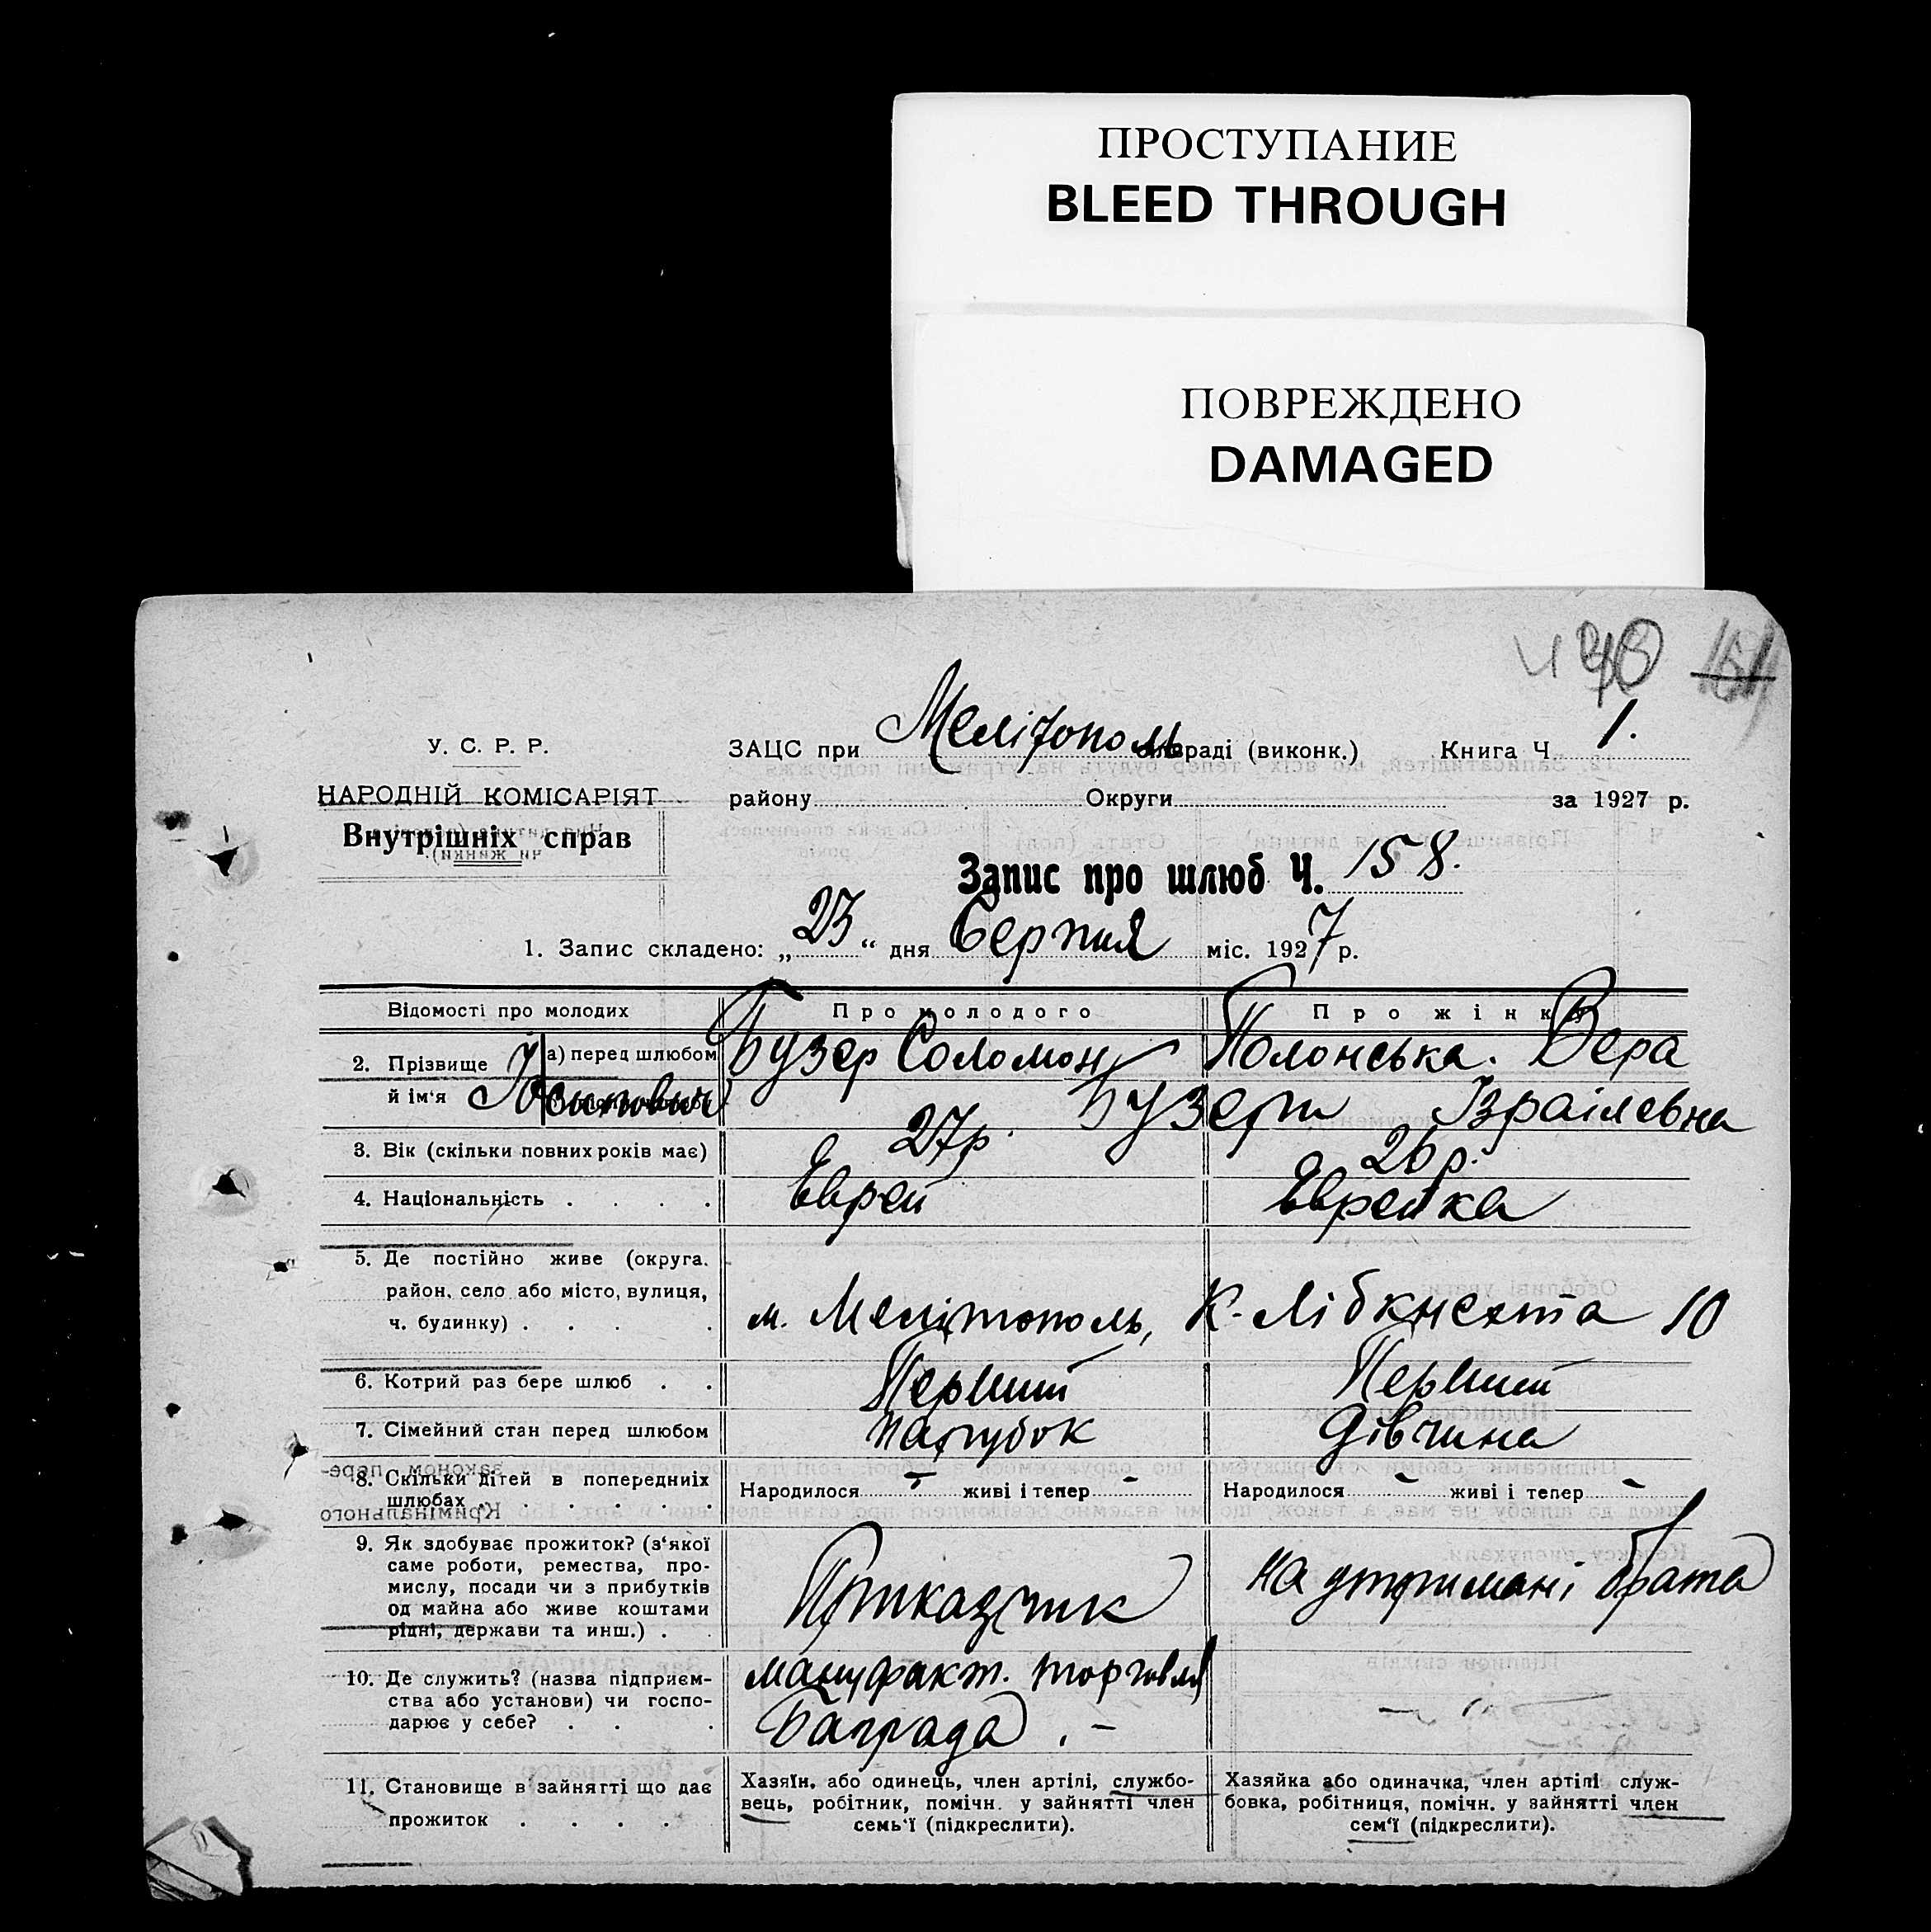 ПРОСТУПАНИЕ
BLEED THROUGH
ПОВРЕЖДЕНО
DAMAGED
У. С. Р. Р.
НАРОДНІЙ КОМІСАРІЯТ
Внутрішніх справ
ЗАЦС при Мелітополь раді (виконк.) Книга Ч 1.
району Округи за 1927 р.
Запис про шлюб Ч. 158.
1. Запис складено: „23“ дня Серпня міс. 1927 р.
Відомості про молодих Про молодого Про жінку
2. Прізвище й ім'я а) перед шлюбом Бузер Соломон Полонська. Вера
Йосипович Бузери Ізраілевна
3. Вік (скільки повних років має) 27р. 26 р.
4. Національність . . . . Еврей Еврейка
5. Де постійно живе (округа.
район, село або місто, вулиця,
ч. будинку) . . . . м. Мелітополь, К. Лібкнехта 10
6. Котрий раз бере шлюб . . Перший Перший
7. Сімейний стан перед шлюбом Парубок Дівчина
8. Скільки дітей в попередніх
шлюбах . . . . . . Народилося - живі і тепер - Народилося - живі і тепер -
9. Як здобуває прожиток? (з'якої
саме роботи, ремества, про-
мислу, посади чи з прибутків
од майна або живе коштами
рідні, держави та инш.) . . Приказчик на утримані брата
10. Де служить? (назва підприєм-
ства або установи) чи госпо-
дарює у себе? . . . мануфакт. торговля
Баграда . –
11. Становище в зайнятті що дає
прожиток . . . .
Хазяїн, або одинець, член артілі, службо-
вець, робітник, помічн. у зайнятті член
семь'ї (підкреслити).
Хазяйка або одиначка, член артілі служ-
бовка, робітниця, помічн. у зайнятті член
сем'ї (підкреслити).